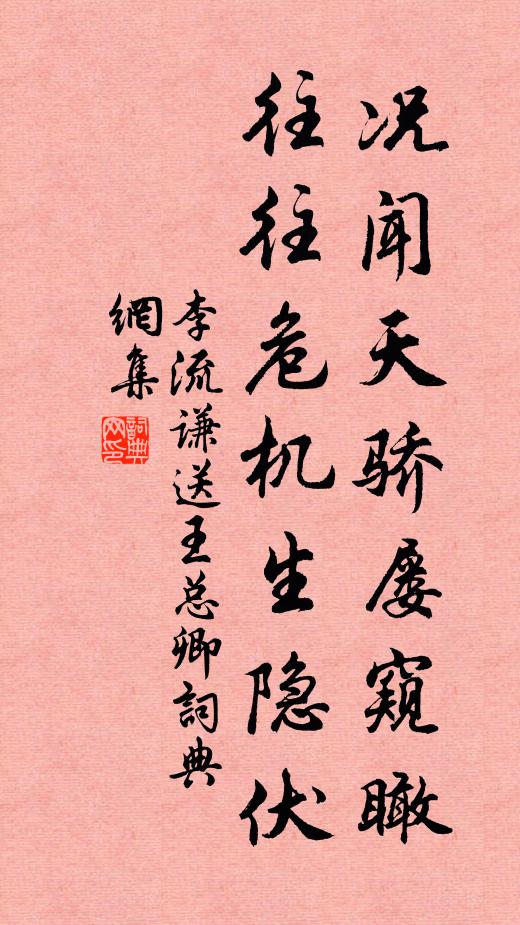 况闻天骄屡窥瞰
往往危机生隐伏
李流谦送王总卿詞典
網集
詞典网印